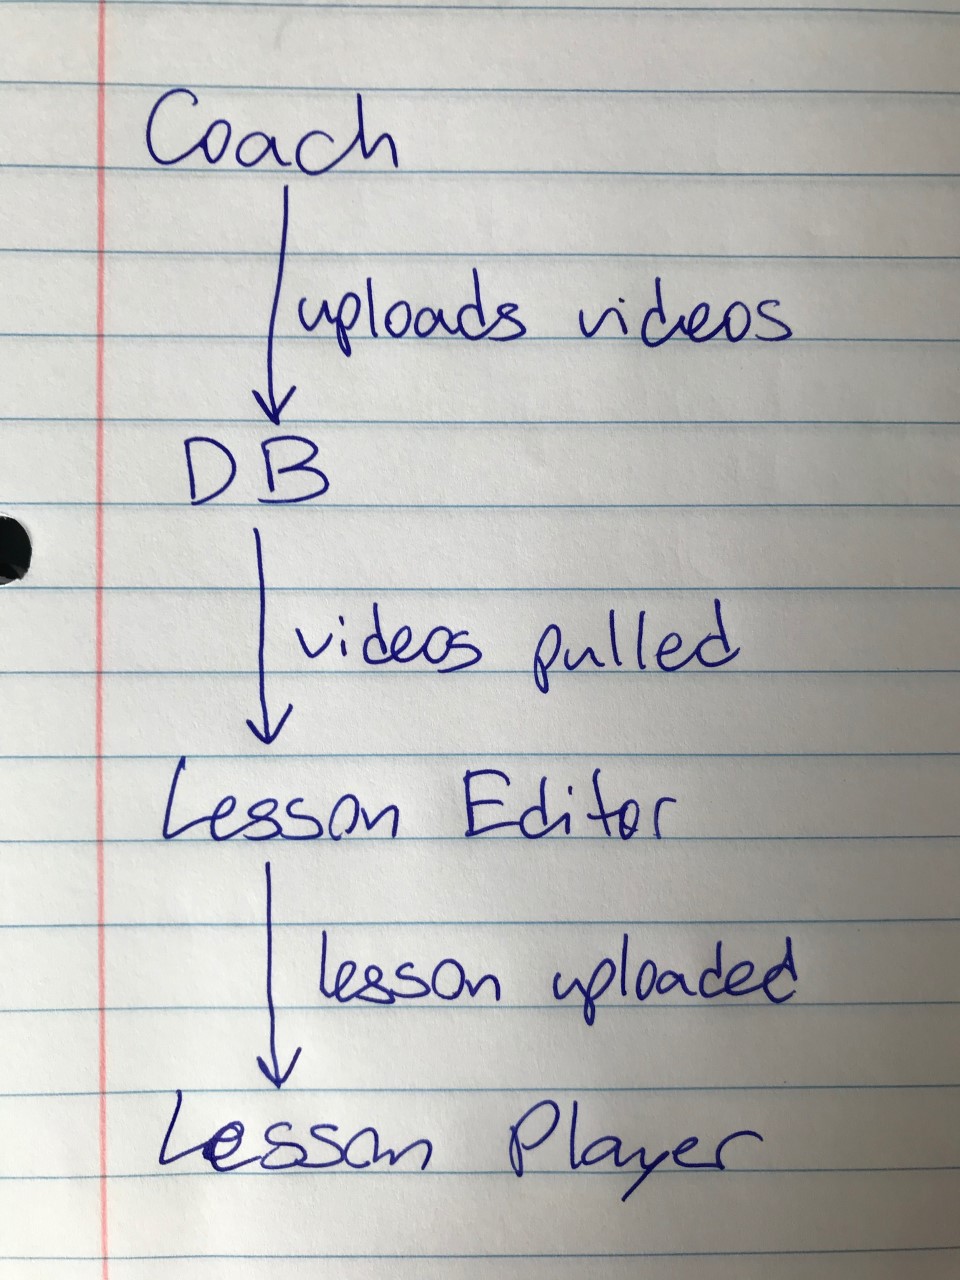 Coach
uploads videos
DB
videos pulled
Lesson Editor
lesson uploaded
Lesson Player